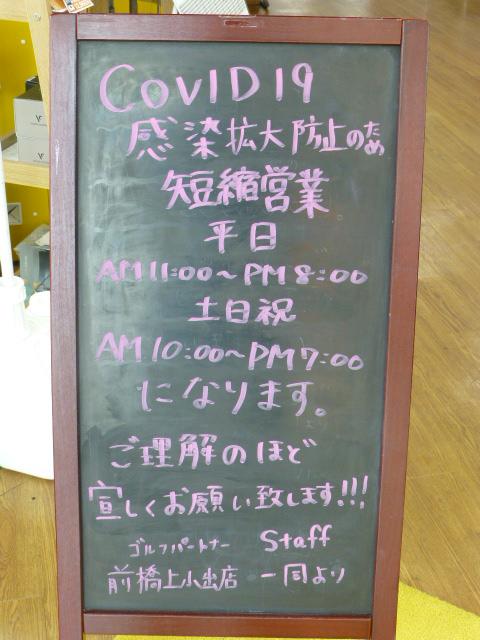 COVID19
感染拡大防止のため
短縮営業
平日
AM11:00～PM8:00
土日祝
AM10:00～PM7:00
になります。
ご理解のほど
宜しくお願い致します!!!
ゴルフパートナー Staff
前橋上小出店 一同より